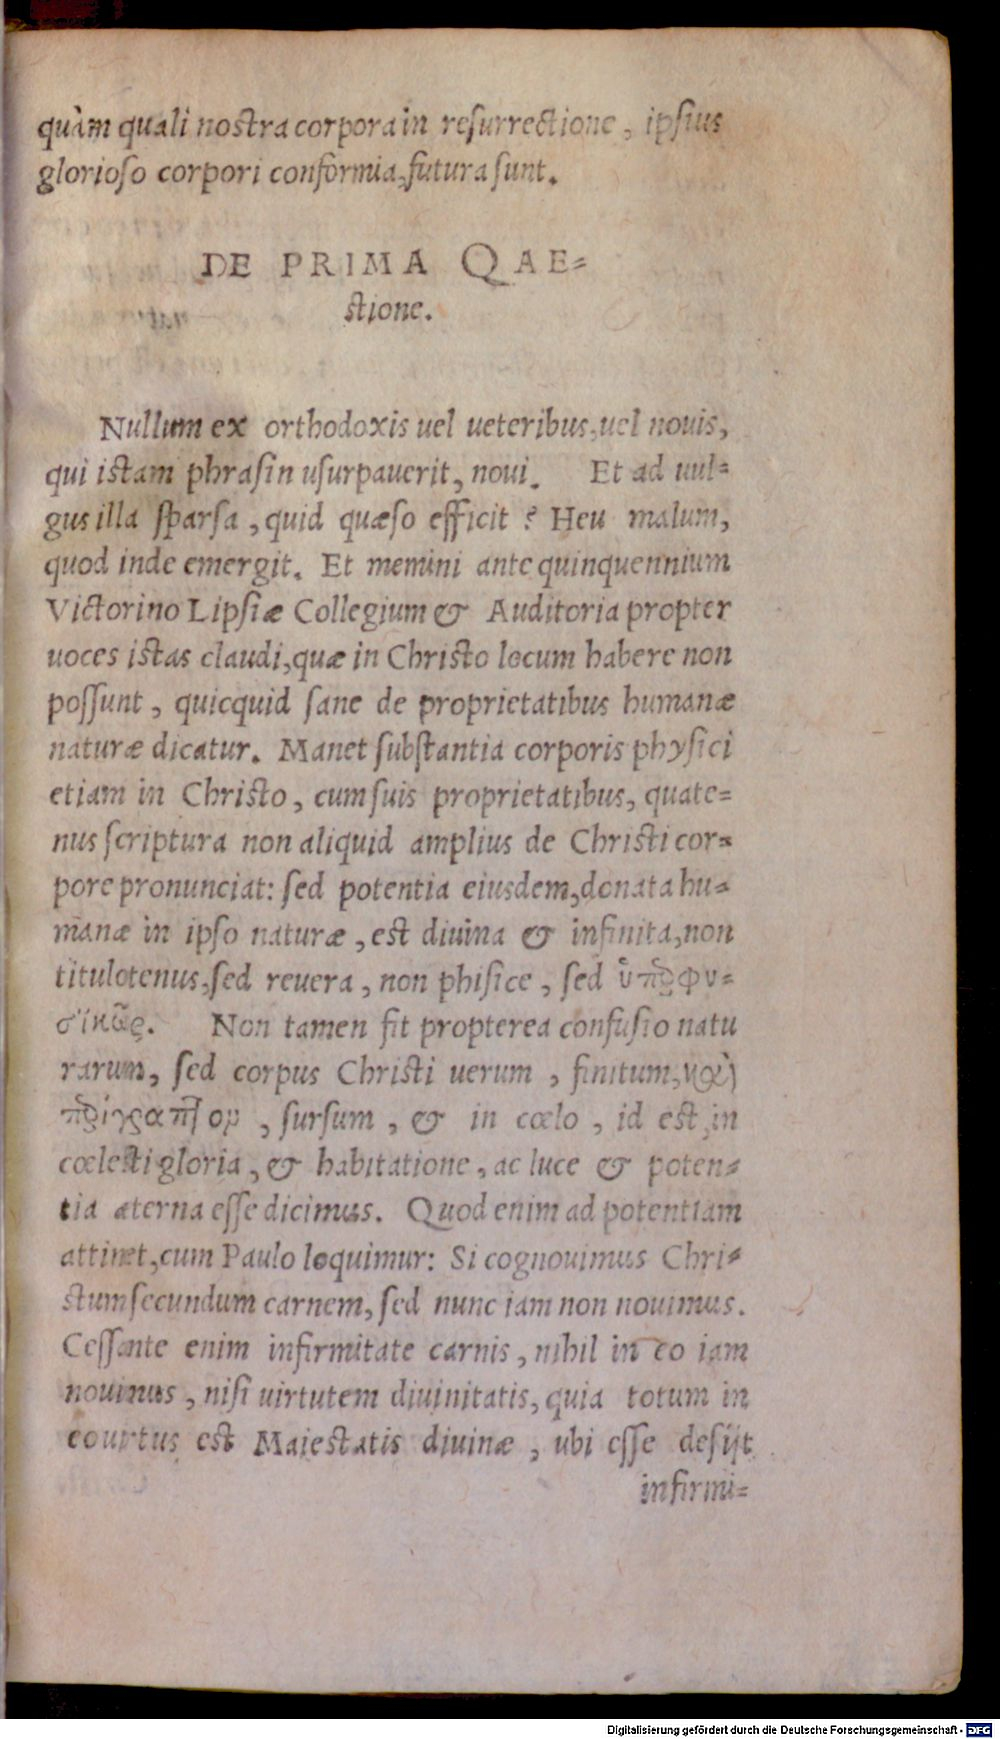 quàm quali nostra corpora in resurrectione, ipsius
glorioso corpori conformia, futura sunt.
DE PRIMA QAE=
stione.
Nullum ex orthodoxis uel ueteribus, uel nouis,
qui istam phrasin usurpauerit, noui. Et ad uul=
gus illa sparsa, quid quæso efficit? Heu malum,
quod inde emergit. Et memini ante quinquennium
Victorino Lipsiæ Collegium & Auditoria propter
uoces istas claudi, quæ in Christo locum habere non
possunt, quicquid sane de proprietatibus humanæ
naturæ dicatur. Manet substantia corporis physici
etiam in Christo, cum suis proprietatibus, quate=
nus scriptura non aliquid amplius de Christi cor=
pore pronunciat: sed potentia eiusdem, donata hu=
manæ in ipso naturæ, est diuina & infinita, non
titulotenus, sed reuera, non phisice, sed ὑπερφυ=
σικῶς. Non tamen fit propterea confusio natu
rarum, sed corpus Christi uerum, finitum, καὶ
περίγραπτον, sursum, & in cœlo, id est, in
cœlesti gloria, & habitatione, ac luce & poten=
tia æterna esse dicimus. Quod enim ad potentiam
attinet, cum Paulo loquimur: Si cognouimus Chri=
stum secundum carnem, sed nunc iam non nouimus.
Cessante enim infirmitate carnis, nihil in eo iam
nouimus, nisi uirtutem diuinitatis, quia totum in
eo uirtus est Maiestatis diuinæ, ubi esse desijt
infirmi=
Digitalisierung gefördert durch die Deutsche Forschungsgemeinschaft - DFG